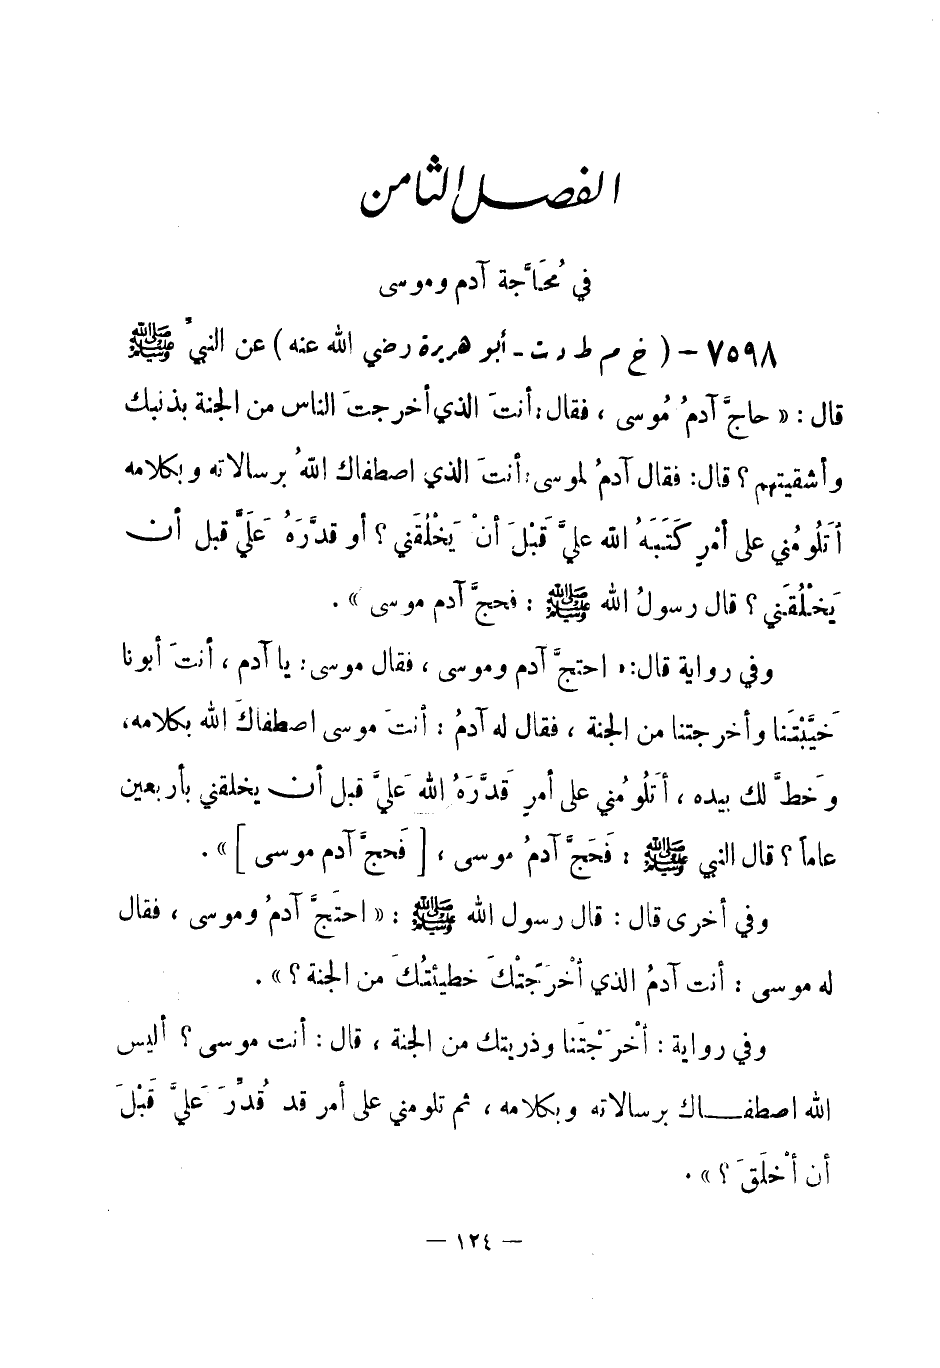 الفصل الثامن
في مُحَاجَّة آدم وموسى
٧٥٩٨ - ( خ م ط د ت - أبو هريرة رضي الله عنه ) عن النبيِّ ﷺ
قال : « حاجَّ آدمُ مُوسى ، فقال : أنتَ الذي أخرجتَ الناس من الجنة بذنبك
وأشقيتهم ؟ قال : فقال آدمُ لموسى : أنتَ الذي اصطفاك اللهُ برسالاته وبكلامه
أتَلُومُني على أمْرٍ كَتَبَهُ الله عليَّ قَبْلَ أنْ يَخْلُقَني ؟ أو قدَّرَهُ عَلَيَّ قبل أن
يَخْلُقَني ؟ قال رسولُ الله ﷺ : فحجَّ آدم موسى » .
وفي رواية قال : « احتجَّ آدم وموسى ، فقال موسى : يا آدم ، أنتَ أبونا
خَيَّبْتَنا وأخرجتنا من الجنة ، فقال له آدمُ : أنتَ موسى اصطفاكَ الله بكلامه ،
وخَطَّ لك بيده ، أتَلُومُني على أمرٍ قَدَّرَهُ الله عَليَّ قبل أن يخلقني بأربعين
عاماً ؟ قال النبي ﷺ : فَحَجَّ آدمُ موسى ، [ فَحجَّ آدم موسى ] » .
وفي أخرى قال : قال رسول الله ﷺ : « احتَجَّ آدمُ وموسى ، فقال
له موسى : أنت آدمُ الذي أخْرَجَتْكَ خطيئتُكَ من الجنة ؟ » .
وفي رواية : أخْرَجْتَنا وذريتك من الجنة ، قال : أنت موسى ؟ أليس
الله اصطفاك برسالاته وبكلامه ، ثم تلومني على أمر قد قُدِّرَ عَليَّ قَبْلَ
أن أُخْلَقَ ؟ » .
— ١٢٤ —